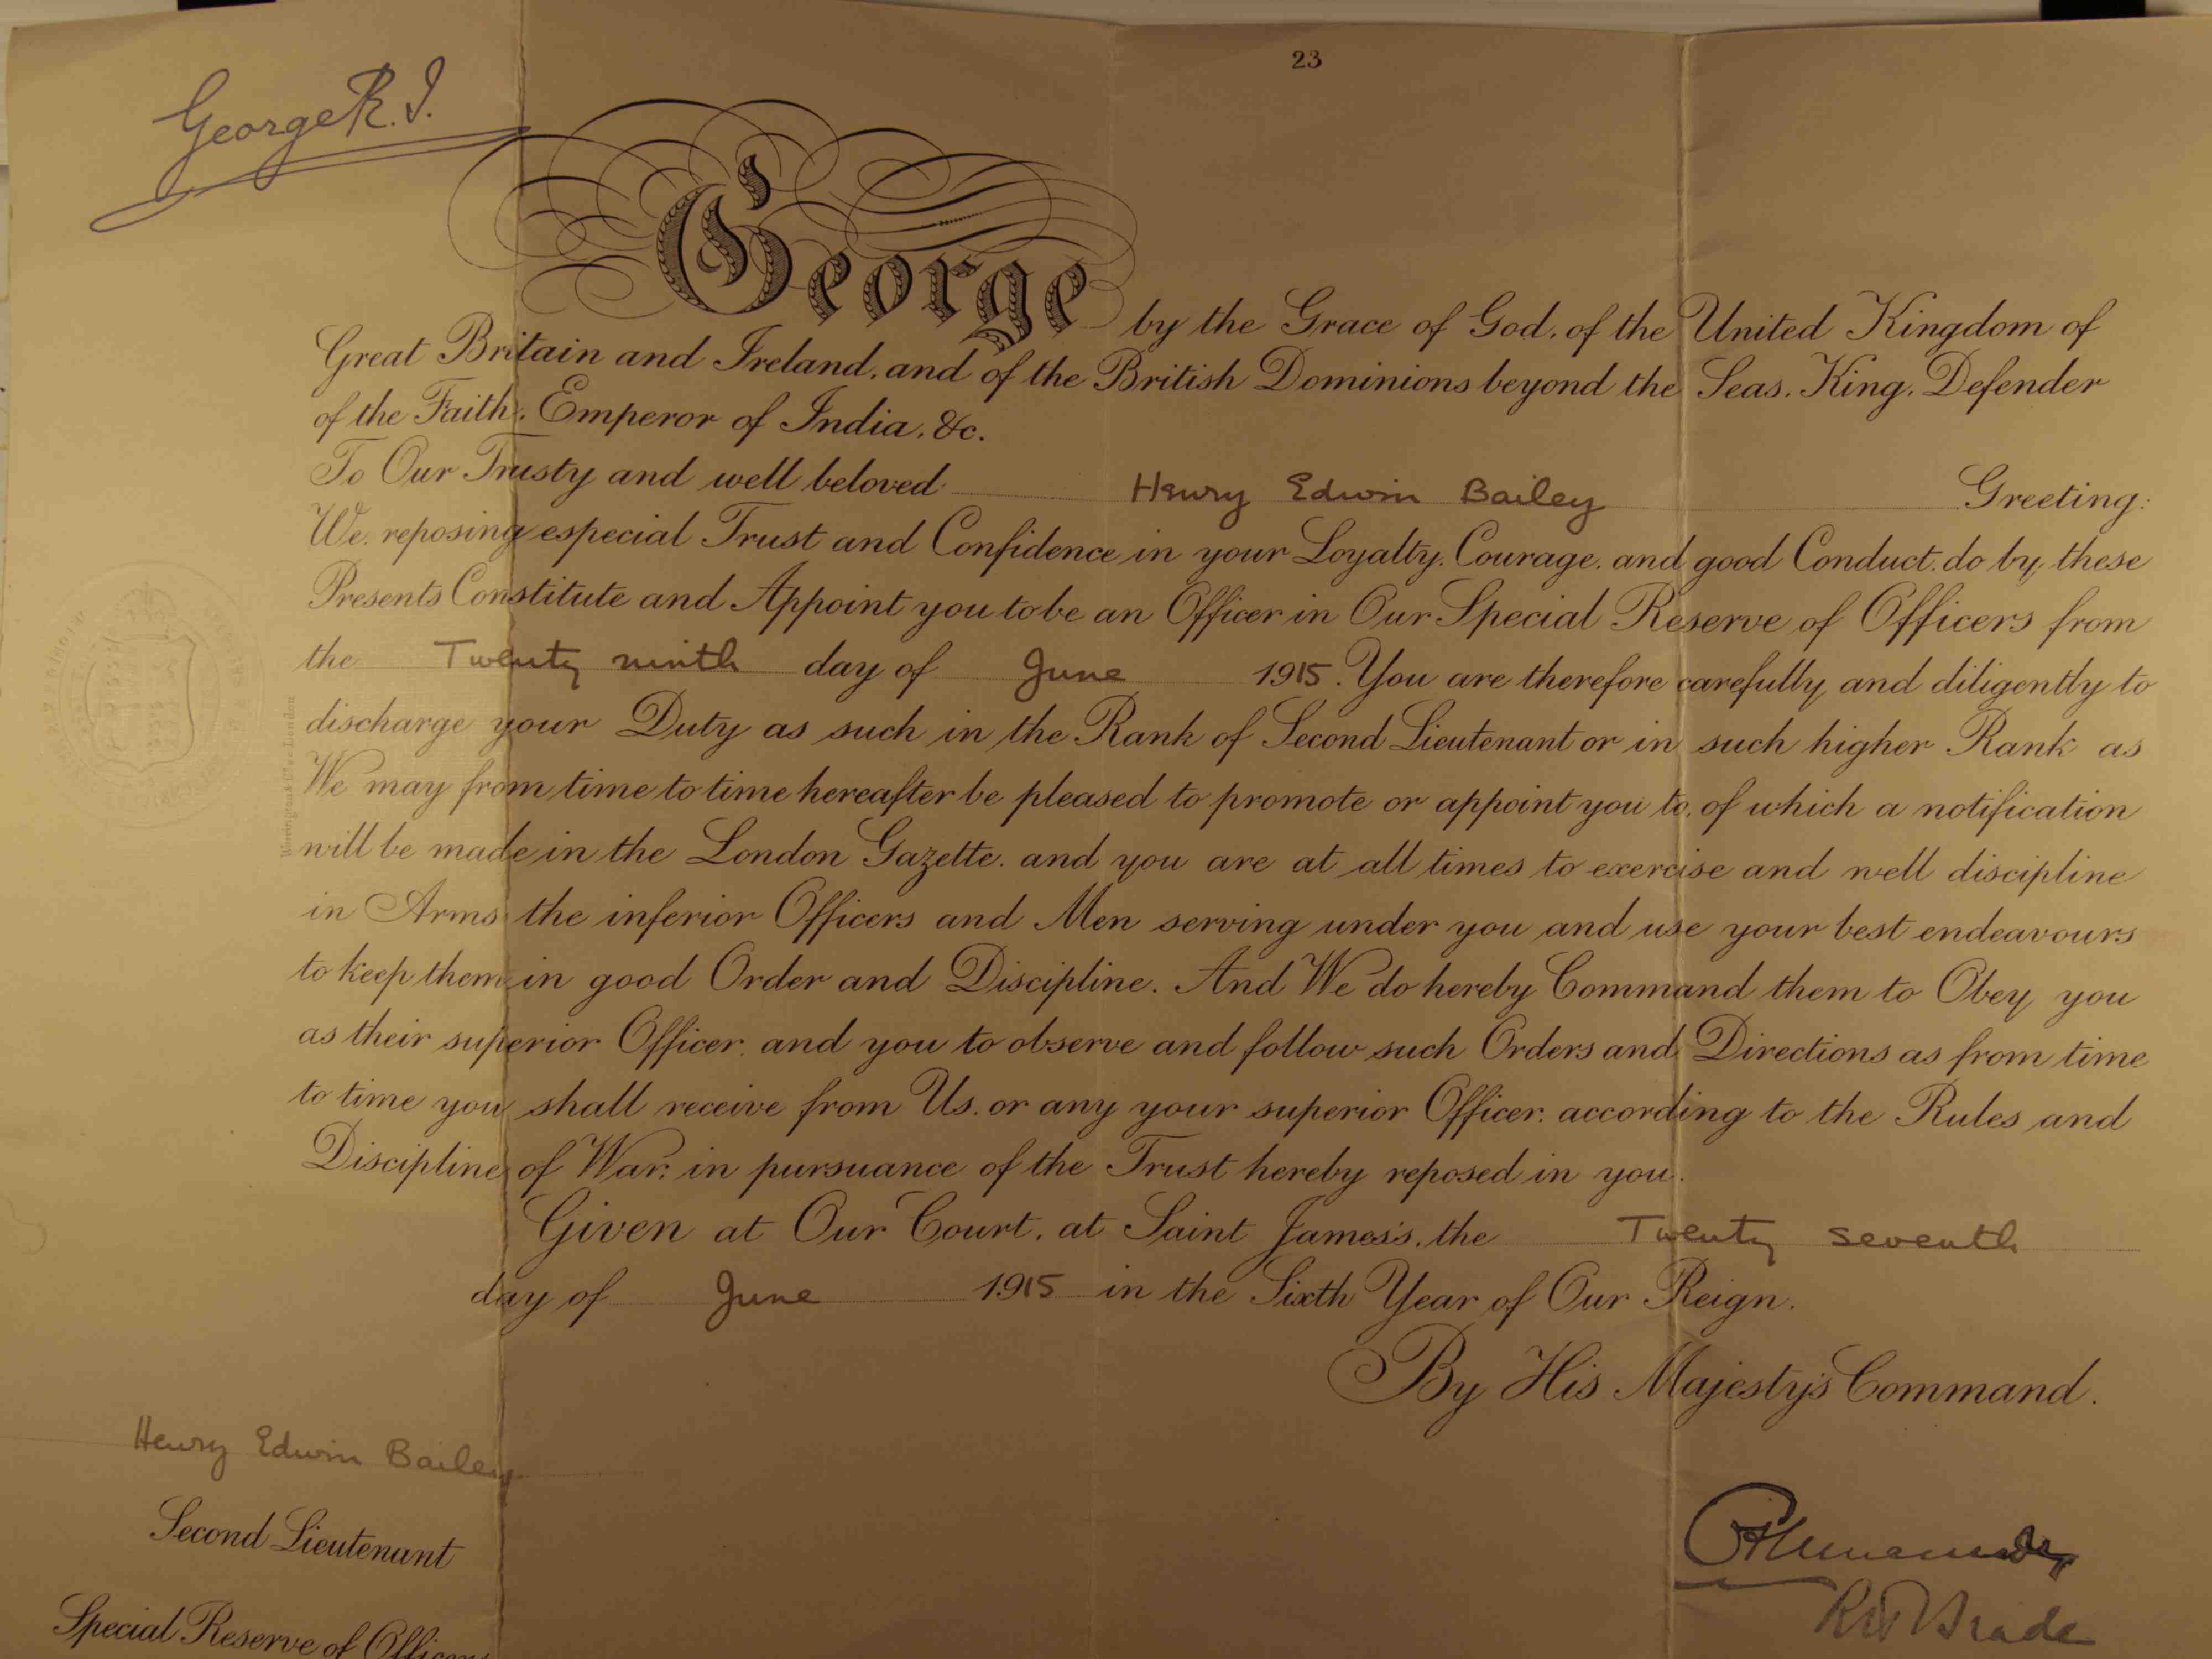 23
George R.I.
George by the Grace of God, of the United Kingdom of
Great Britain and Ireland, and of the British Dominions beyond the Seas, King, Defender
of the Faith, Emperor of India, &c.
To Our Trusty and well beloved Henry Edwin Bailey Greeting:
We, reposing especial Trust and Confidence in your Loyalty, Courage, and good Conduct, do by these
Presents Constitute and Appoint you to be an Officer in Our Special Reserve of Officers from
the Twenty ninth day of June 1915. You are therefore carefully and diligently to
discharge your Duty as such in the Rank of Second Lieutenant or in such higher Rank as
We may from time to time hereafter be pleased to promote or appoint you to, of which a notification
will be made in the London Gazette, and you are at all times to exercise and well discipline
in Arms the inferior Officers and Men serving under you and use your best endeavours
to keep them in good Order and Discipline. And We do hereby Command them to Obey you
as their superior Officer, and you to observe and follow such Orders and Directions as from time
to time you shall receive from Us, or any your superior Officer, according to the Rules and
Discipline of War, in pursuance of the Trust hereby reposed in you.
Given at Our Court, at Saint James's, the Twenty seventh
day of June 1915 in the Sixth Year of Our Reign.
By His Majesty's Command.
Henry Edwin Bailey
Second Lieutenant
Special Reserve of Officers
R W Brade